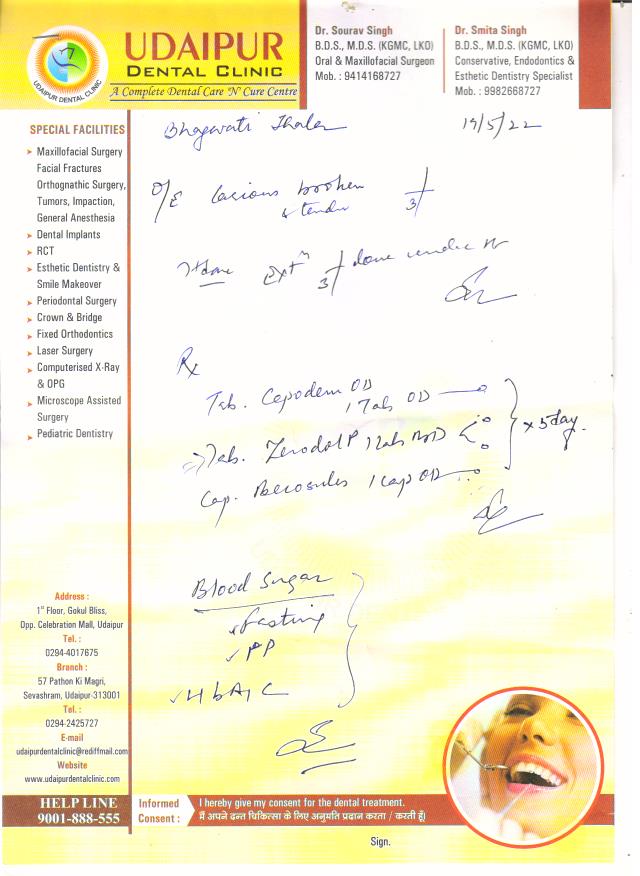 UDAIPUR
DENTAL CLINIC
A Complete Dental Care 'N' Cure Centre
UDAIPUR DENTAL CLINIC
Dr. Sourav Singh
B.D.S., M.D.S. (KGMC, LKO)
Oral & Maxillofacial Surgeon
Mob. : 9414168727
Dr. Smita Singh
B.D.S., M.D.S. (KGMC, LKO)
Conservative, Endodontics &
Esthetic Dentistry Specialist
Mob. : 9982668727
SPECIAL FACILITIES
Maxillofacial Surgery
Facial Fractures
Orthognathic Surgery,
Tumors, Impaction,
General Anesthesia
Dental Implants
RCT
Esthetic Dentistry &
Smile Makeover
Periodontal Surgery
Crown & Bridge
Fixed Orthodontics
Laser Surgery
Computerised X-Ray
& OPG
Microscope Assisted
Surgery
Pediatric Dentistry
Bhagwati
19/5/22
O/E Carious broken
& tender 3
Extn 3 done under
Rx
Tab. OD
1 Tab OD
Tab. Zerodol P 1 tab BD
x 5 day
Cap. Becosules 1 cap OD
Blood Sugar
Fasting
✓ PP
✓ HbA1C
Address :
1st Floor, Gokul Bliss,
Opp. Celebration Mall, Udaipur
Tel. :
0294-4017675
Branch :
57 Pathon Ki Magri,
Sevashram, Udaipur-313001
Tel. :
0294-2425727
E-mail
udaipurdentalclinic@rediffmail.com
Website
www.udaipurdentalclinic.com
HELP LINE
9001-888-555
Informed
Consent :
I hereby give my consent for the dental treatment.
मैं अपने दन्त चिकित्सा के लिए अनुमति प्रदान करता / करती हूँ।
Sign.